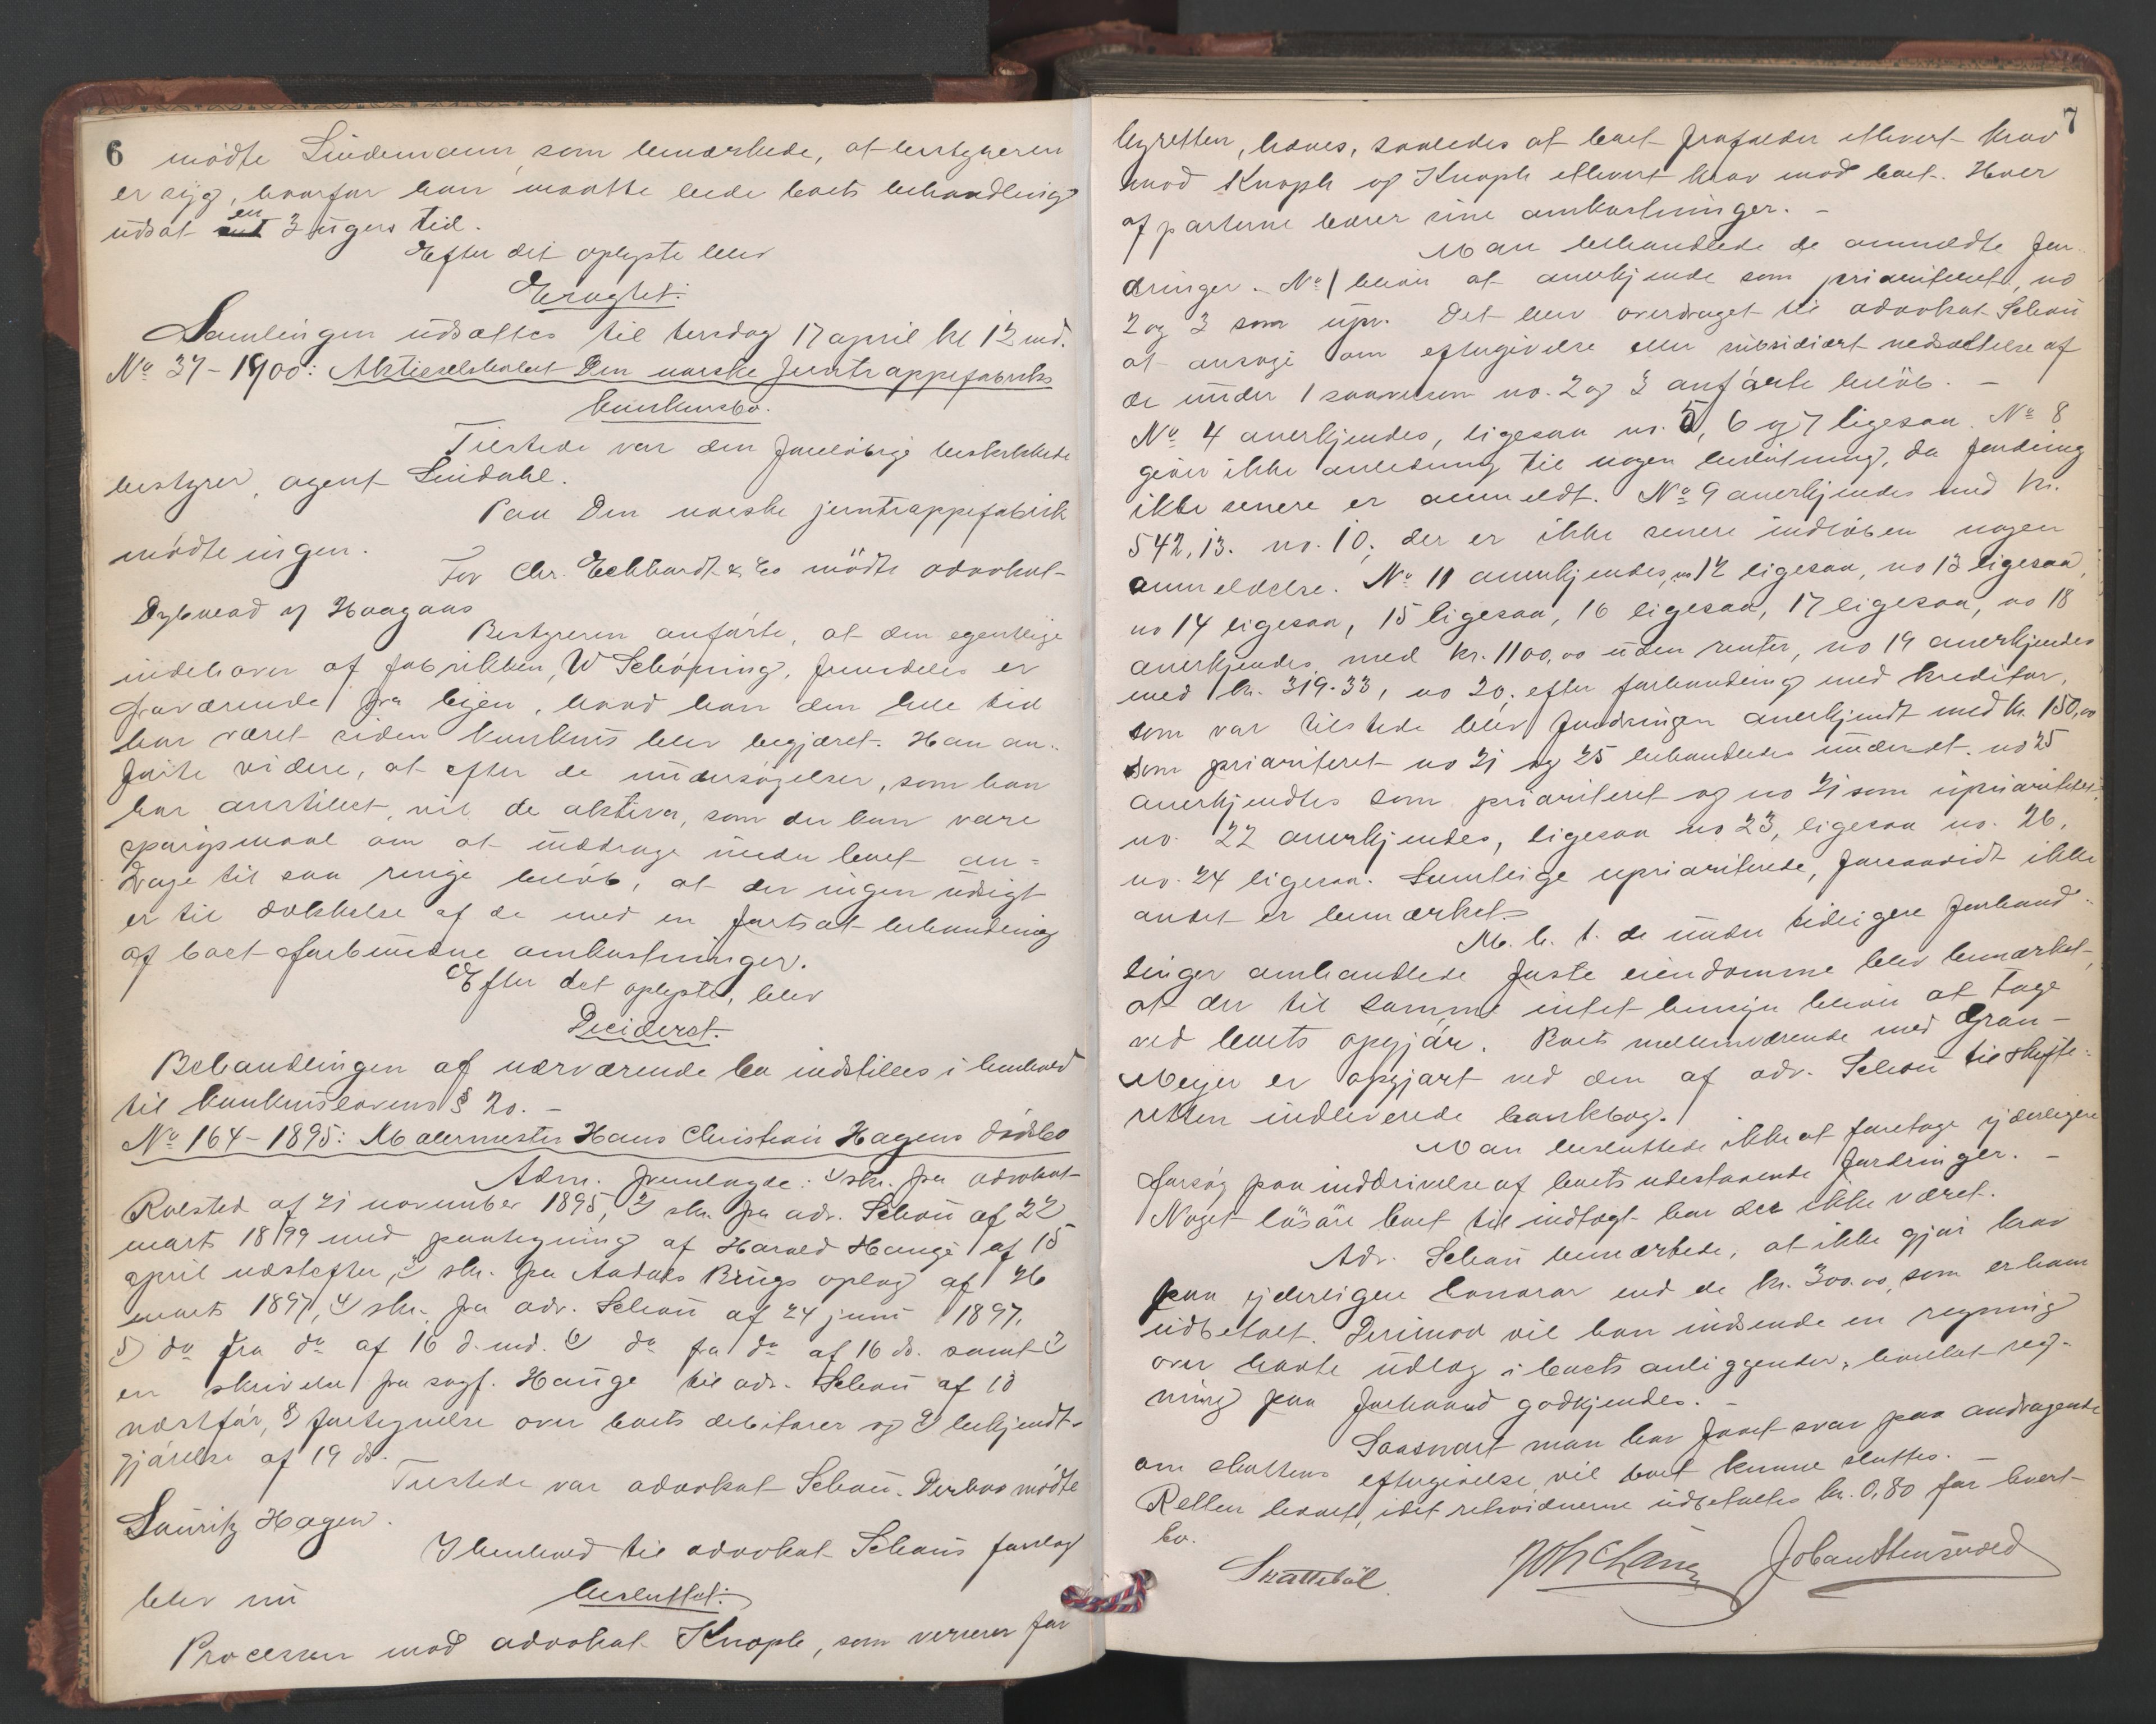 6
mödte Lindemann, som bemærkede, at bestyreren
er syg, hvorfor han maatte bede boets behandling
udsat en 3 ugers tid.
Efter det oplyste blev
Eragtet:
Samlingen udsættes til tirsdag 17 april kl 12 md.
No 37-1900: Aktieselskabet Den norske Jerntrappefabriks
konkursbo.
Tilstede var den foreløbige beskikkede
bestyrer, agent Lindahl.
Paa Den norske jerntrappefabrik
mödte ingen.
For Chr. Eckhardt & Co mödte advokat
Dybwad og Haagaas
Bestyreren anførte, at den egentlige
indehaver af fabrikken, W Schöning, fremdeles er
fraværende fra byen, hvad han den hele tid
har været siden konkurs blev begjæret. Han an-
førte videre, at efter de undersøgelser, som han
har anstillet, vil de aktiva, som der kan være
spørgsmaal om at inddrage under boet an=
drage til saa ringe beløb, at der ingen udsigt
er til dækkelse af de med en fortsat behandling
af boet forbundne omkostninger.
Efter det oplyste, blev
Decideret:
Behandlingen af nærværende bo indstilles i henhold
til konkurslovens § 20. –
No 164-1895: Malermester Hans Christian Hagens dödsbo
Adm. fremlagde: 1) skr. fra advokat
Rolsted af 21 november 1895, 2) skr. fra adv. Schou af 22
marts 1899 med paategning af Harald Hauge af 15
april næstefter, 3) skr. fra Anders Brugs oplag af 26
marts 1897, 4) skr. fra adv. Schou af 24 juni 1897,
5) do fra do af 16 d. md. 6) do fra do af 16 ds. samt 7)
en skrivelse fra sagf. Hauge til adv. Schou af 13
næstfør, 8) fortegnelse over boets debitorer og 9) bekjendt-
gjørelse af 19 ds.
Tilstede var advokat Schou. Derhos mödte
Lauritz Hagen.
I henhold til advokat Schous forslag
blev nu
besluttet:
Processen mod advokat Knoph, som verserer for
7
byretten, hæves, saaledes at boet frafalder ethvert krav
mod Knoph og Knoph ethvert krav mod boet. Hver
af parterne bærer sine omkostninger. –
Man behandlede de anmeldte for-
dringer. No 1 blev at anerkjende som prioriteret, no
2 og 3 som upr. Det blev overdraget til advokat Schou
at ansøge om eftergivelse eller subsidiært nedsættelse af
de under 1 saavelsom no. 2 og 3 anførte beløb. –
No 4 anerkjendes, ligesaa no. 5, 6 og 7 ligesaa. No 8
giver ikke anledning til nogen beslutning, da fordring
ikke senere er anmeldt. No 9 anerkjendes med kr.
542,13. no. 10; der er ikke senere indløben nogen
anmeldelse. No 11 anerkjendes, no 12 ligesaa, no 13 ligesaa,
no 14 ligesaa, 15 ligesaa, 16 ligesaa, 17 ligesaa, no 18
anerkjendes med kr. 1100,00 uden renter, no 19 anerkjendes
med kr. 319.33, no 20; efter forhandling med kreditor,
som var tilstede blev fordringen anerkjendt med kr. 150,00
som prioriteret no 21 og 25 behandledes underet. no 25
anerkjendtes som prioriteret og no 21 som uprioriteret;
no. 22 anerkjendes, ligesaa no 23, ligesaa no. 26,
no. 24 ligesaa. Samtlige uprioriterede, forsaavidt ikke
andet er bemærket.
M. h. t. de under tidligere forhand-
linger omhandlede faste eiendomme blev bemærket,
at der til samme intet hensyn blev at tage
ved boets opgjør. Boets mellemværende med Gran-
Meyer er opgjort ved den af adv. Schou til skifte-
retten indleverede bankbog.
Man besluttede ikke at foretage yderligere
forsøg paa inddrivelse af boets udestaaende fordringer. –
Noget løsøre boet til indtægt har der ikke været.
Adv. Schou bemærkede, at ikke gjør krav
paa yderligere honorar end de kr. 300.00, som er ham
udbetalt. Derimod vil han indsende en regning
over havte udlæg i boets anliggender, hvilken reg-
ning paa forhaand godkjendes. –
Saasnart man har faaet svar paa andragende
om skattens eftergivelse, vil boet kunne sluttes. –
Retten hævet, idet retsvidnerne udbetaltes kr. 0,80 for hvert
bo.
Skattebøl Johan Stensrud